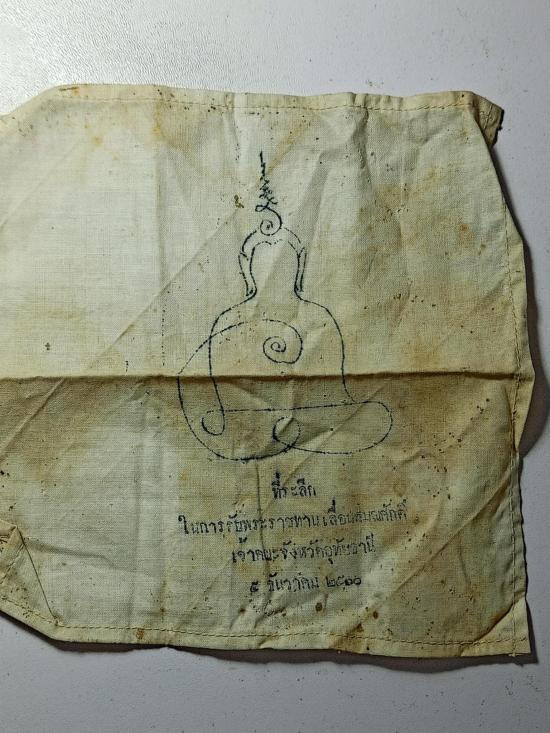 ที่ระลึก
ในการรับพระราชทานเลื่อนสมณศักดิ์
เจ้าคณะจังหวัดอุทัยธานี
๕ ธันวาคม ๒๕๐๐